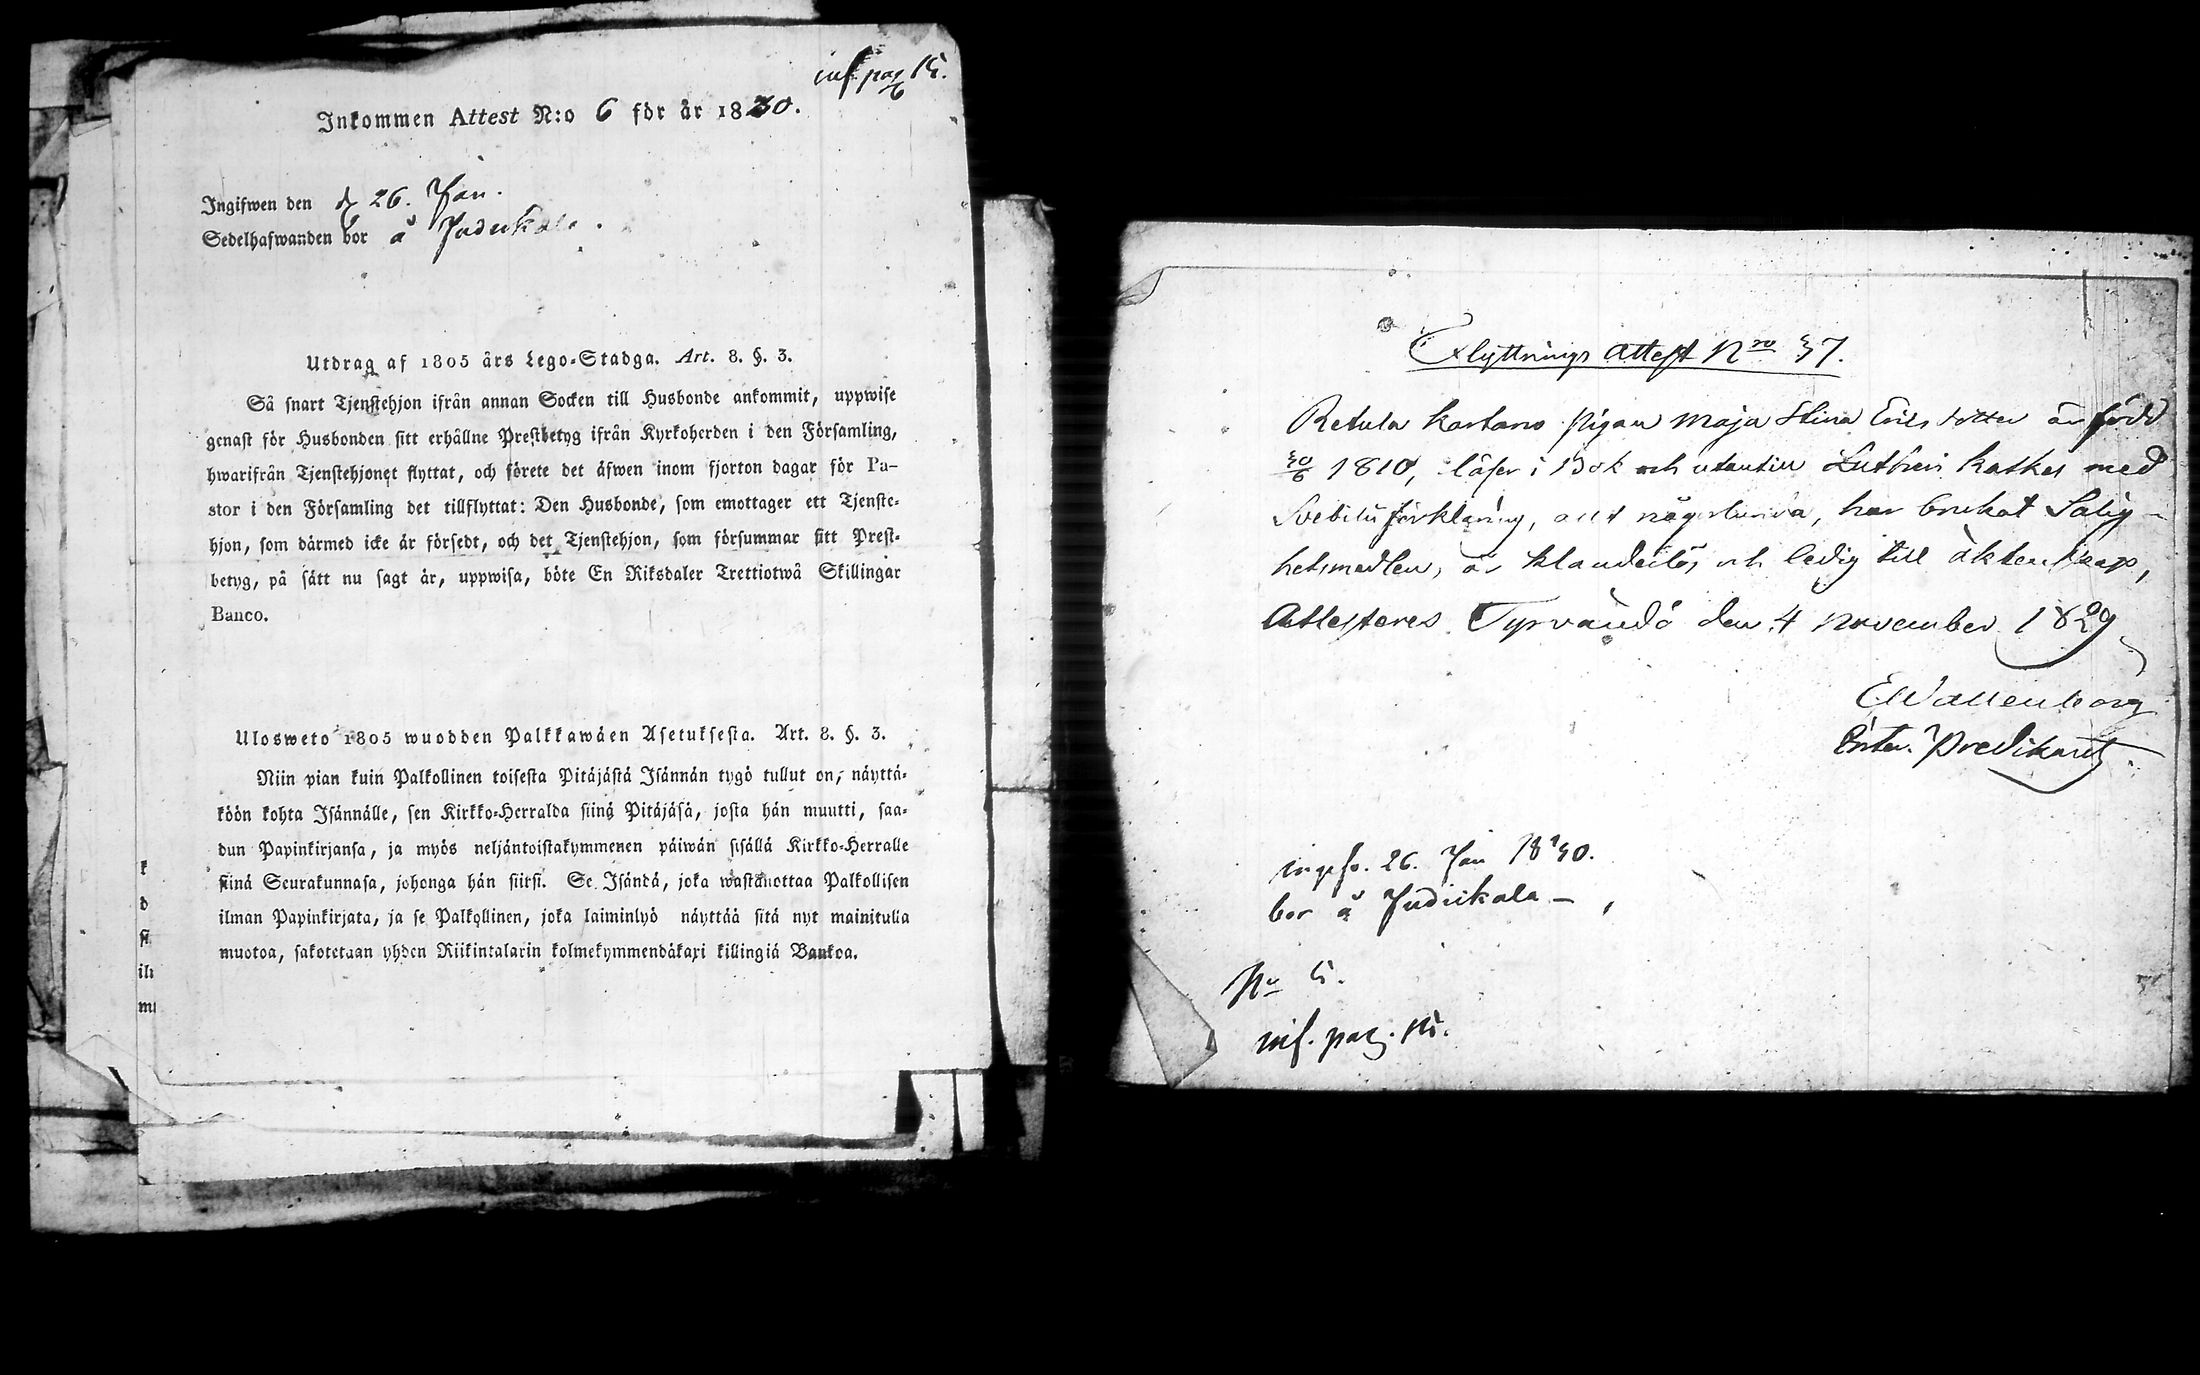 inf pag 15.
Inkommen Attest N:o 6 för år 1830.
Ingifwen den d 26. Jan.
Sedelhafwanden bor å Judikkala.
Utdrag af 1805 års Lego-Stadga. Art. 8. §. 3.
Så snart Tjenstehjon ifrån annan Socken till Husbonde ankommit, uppwise
genast för Husbonden sitt erhållne Prestbetyg ifrån Kyrkoherden i den Församling,
hwarifrån Tjenstehjonet flyttat, och förete det äfwen inom fjorton dagar för Pa-
stor i den Församling det tillflyttat: Den Husbonde, som emottager ett Tjenste-
hjon, som därmed icke är försedt, och det Tjenstehjon, som försummar sitt Prest-
betyg, på sätt nu sagt är, uppwisa, böte En Riksdaler Trettiotwå Skillingar
Banco.
Ulosweto 1805 wuodden Palkkawäen Asetuksesta. Art. 8. §. 3.
Niin pian kuin Palkollinen toisesta Pitäjästä Isännän tygö tullut on, näyttä-
köön kohta Isännälle, sen Kirkko-Herralda siinä Pitäjäsä, josta hän muutti, saa-
dun Papinkirjansa, ja myös neljäntoistakymmenen päiwän sisällä Kirkko-Herralle
siinä Seurakunnasa, johonga hän siirsi. Se Isändä, joka wastanottaa Palkollisen
ilman Papinkirjata, ja se Palkollinen, joka laiminlyö näyttää sitä nyt mainitulla
muotoa, sakotetaan yhden Riikintalarin kolmekymmendäkaxi killingiä Bankoa.
k
d
si
ilı
mı
Flyttnings Attest Nro 37.
Retula Kartano Pigan Maja Stina Ersdotter är född
30/6 1810, läser i Bok och utantill Lutheri Kathes med
Svebilii förklaring, allt någorlunda, har brukat Salig-
hetsmedlen, är klanderlös och ledig till äktenskap,
Attesteres Tyrvändö den 4 November 1829
E Wallenborg
Önter. Predikant.
ingifv. 26. Jan 1830.
bor å Judikkala
No 6.
inf. pag. 15.